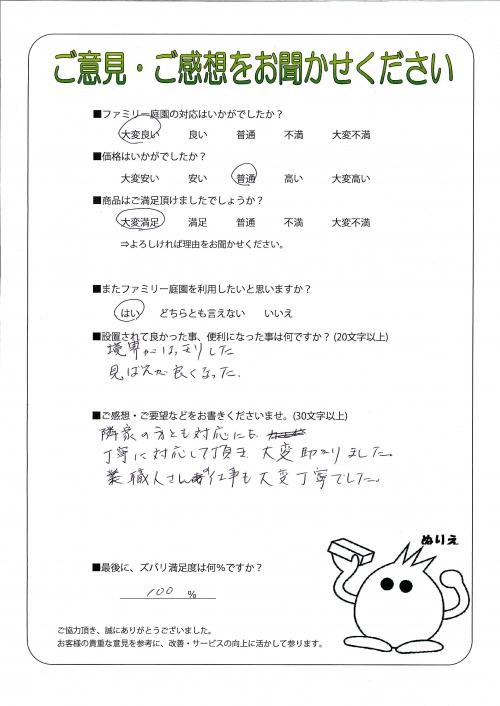 ご意見・ご感想をお聞かせください
■ファミリー庭園の対応はいかがでしたか？
大変良い 良い 普通 不満 大変不満
■価格はいかがでしたか？
大変安い 安い 普通 高い 大変高い
■商品はご満足頂けましたでしょうか？
大変満足 満足 普通 不満 大変不満
⇒よろしければ理由をお聞かせください。
■またファミリー庭園を利用したいと思いますか？
はい どちらとも言えない いいえ
■設置されて良かった事、便利になった事は何ですか？(20文字以上)
境界がはっきりした
見ばえが良くなった.
■ご感想・ご要望などをお書きくださいませ。(30文字以上)
隣家の方とも対応にも
丁寧に対応して頂き 大変助かりました。
職人さんの仕事も大変丁寧でした。
ぬりえ
■最後に、ズバリ満足度は何％ですか？
100 %
ご協力頂き、誠にありがとうございました。
お客様の貴重な意見を参考に、改善・サービスの向上に活かして参ります。